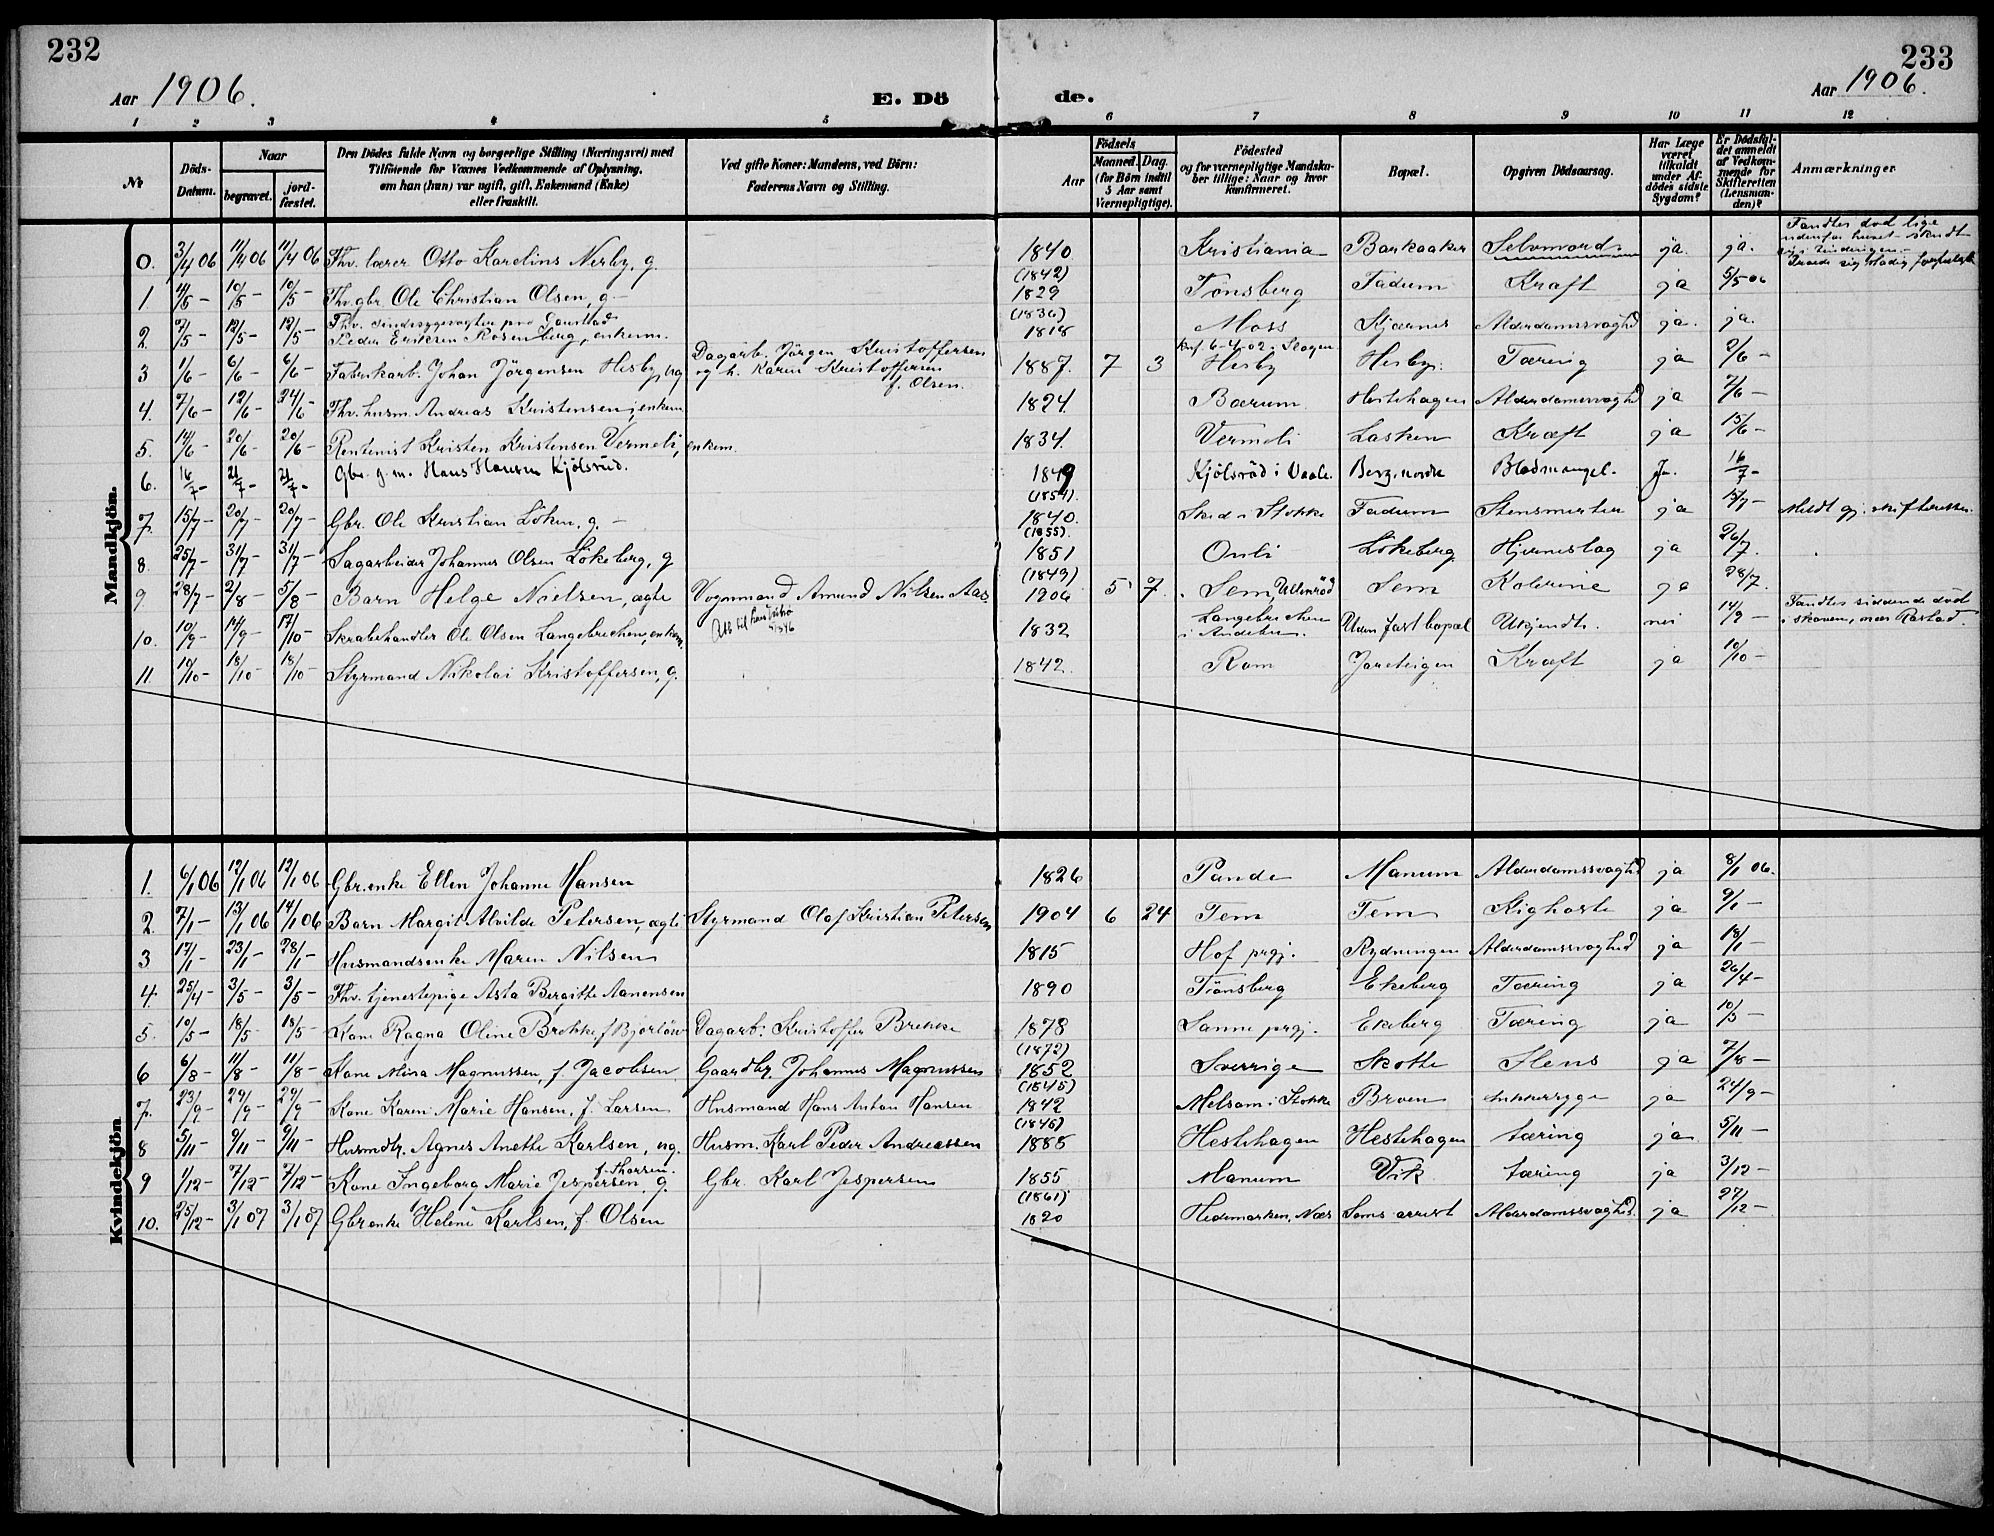 232
233
Aar 1906.
E. Döde.
Aar 1906.
1 2 3 4 5 6 7 8 9 10 11 12
No
Döds-Datum.
Naar
begravet.
jord-fæstet.
Den Dödes fulde Navn og borgerlige Stilling (Næringsvei) med
Tilföiende for Voxnes Vedkommende af Oplysning,
om han (hun) var ugift, gift, Enkemand (Enke)
eller fraskilt.
Ved gifte Koner: Mandens, ved Börn:
Faderens Navn og Stilling.
Aar
Födsels
Maaned. Dag.
(for Börn indtil
5 Aar samt
Værnepligtige).
Födested
og for værnepligtige Mandska-
ber tillige: Naar og hvor
konfirmeret.
Bopæl.
Opgiven Dödsaarsag.
Har Læge
været
tilkaldt
under Af-
dödes sidste
Sygdom?
Er Dödsfal-
det anmeldt
af Vedkom-
mende for
Skifteretten
(Lensman-
den)?
Anmærkninger
Mandkjön.
0. 3/4 06 11/4 06 11/4 06 Fhv. lærer Otto Karelius Nerby, g. 1840 Kristiania Barkaaker Selvmord ja. ja. Fandtes död lige udenfor huset – skudt
(1842)
1 4/5 – 10/5 – 10/5 – Fhv. gbr. Ole Christian Olsen, g. – 1829 Tönsberg Fadum Kræft ja 5/5 06
(1836)
2 7/5 – 12/5 – 12/5 – Fhv. sindssygevogter paa Gaustad
Peder Eriksen Rosenberg, enkem. 1818 Moss Kjærnes Alderdomssvaghed ja. ja.
3 1/6 – 6/6 – 6/6 – Fabrikarb. Johan Jörgensen Hesby, ug Dagarb. Jörgen Kristoffersen
og h. Karen Kristoffersen
f. Olsen. 1887. 7 3 knf. 6-4-02 i Slagen
Hesby Hesby. Tæring ja 2/6 –
4. 7/6 – 12/6 – 24/6 – Fhv. husm. Andreas Kristensen, enkem 1824. Bærum Hestehagen Alderdomssvaghed ja 7/6 –
5. 14/6 – 20/6 – 20/6 – Rentenist Kristen Kristensen Vermeli, enkem. 1834. Vermeli Lasken Kræft ja 15/6 –
6. 16/7 – 21/7 – 21/7 – Gbr. g.m. Hans Hansen Kjölsröd. 1849 Kjölsröd i Vaale. Berg, nordre Blodmangel. Ja. 16/7 –
(1854).
7. 15/7 – 20/7 – 20/7 – Gbr. Ole Kristian Löken, g. – 1840. Sked i Stokke Fadum Stensmerter ja 15/7 – Meldt gj. skifteretten.
(1855).
8. 25/7 – 31/7 – 31/7 – Sagarbeider Johannes Olsen Lökeberg, g 1851 Onli Lökeberg Hjerneslag ja 26/7.
(1849)
9 28/7 – 2/8 – 5/8 – Barn Helge Nielsen, ægte Vognmand Amund Nilsen Aas. 1906 5 7. Sem, Ullenröd Sem Kolerine ja 28/7.
10. 10/9 – 14/9 – 17/10 – Skrabhandler Ole Olsen Langebrekken, enkem. 1832 Langebrekken
i Andebu. Uden fast bopæl Ukjendt. nei 14/9 – Fandtes siddende död
i skoven, nær Rastad.
11. 10/10 – 18/10 – 18/10 – Styrmand Nikolai Kristoffersen, g. 1842. Ram Jareteigen Kræft ja 10/10 –
Kvindekjön
1. 6/1 06 12/1 06 12/1 06 Gbr.enke Ellen Johanne Hansen 1826 Pande Manum Alderdomssvaghed ja 8/1 06.
2. 7/1 – 13/1 06 14/1 06 Barn Margit Alvilde Petersen, ægte Styrmand Olaf Kristian Petersen 1904 6 24 Tem Tem Kighoste ja 9/1 –
3 17/1 – 23/1 – 28/1 – Husmandsenke Maren Nilsen 1815 Hof prgj. Rydningen Alderdomssvaghed ja 18/1 –
4. 25/4 – 3/5 – 3/5 – Fhv. tjenestepige Asta Bergitte Aanensen 1890 Tönsberg Ekeberg Tæring ja 26/4 –
5. 10/5 – 18/5 – 18/5 – Kone Ragna Oline Brekke, f. Bjorlöw Dagarb. Kristoffer Brekke 1878 Sanne prgj. Ekeberg Tæring ja 10/5 –
(1872)
6 6/8 – 11/8 – 11/8 – Kone Mina Magnussen, f. Jacobsen Gaardbr. Johannes Magnussen 1852 Sverrige Skotte Slens ja 7/8 –
(1845)
7. 23/9 – 29/9 – 29/9 – Kone Karen Marie Hansen, f. Larsen Husmand Hans Anton Hansen 1842 Melsom i Stokke Broen sukkersyge ja 24/9 –
(1846)
8 5/11 – 9/11 – 9/11 – Husmdtr. Agnes Anette Karlsen, ug. Husm. Karl Peder Andreassen 1885 Hestehagen Hestehagen tæring ja 5/11 –
9 1/12 – 7/12 – 7/12 – Kone Ingeborg Marie Jespersen f. Thorsen. g. Gbr. Karl Jespersen 1855 Manum Vik tæring ja 3/12 –
(1861)
10. 25/12 – 3/1 07 3/1 07 Gbr.enke Helene Karlsen, f. Olsen 1820 Hedemarken, Næs Sems arrest Alderdomssvaghed. ja 27/12 –